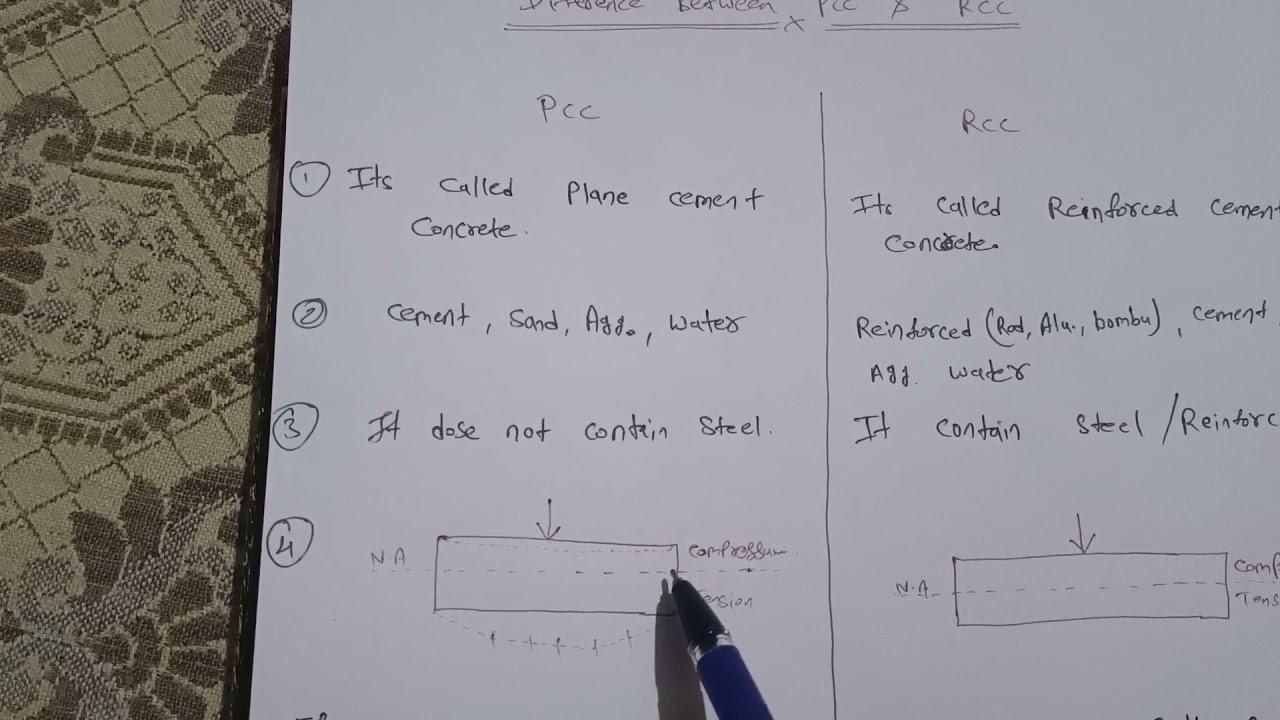 Difference Between PCC & RCC
PCC
RCC
① Its Called Plane cement
Concrete.
Its Called Reinforced Cement
Concrete.
② Cement, Sand, Agg., Water
Reinforced (Rod, Alu., bombu), Cement
Agg. Water
③ It dose not contain Steel.
It Contain Steel /Reinforc
④
N.A
Compression
Tension
N.A.
Comp
Tens